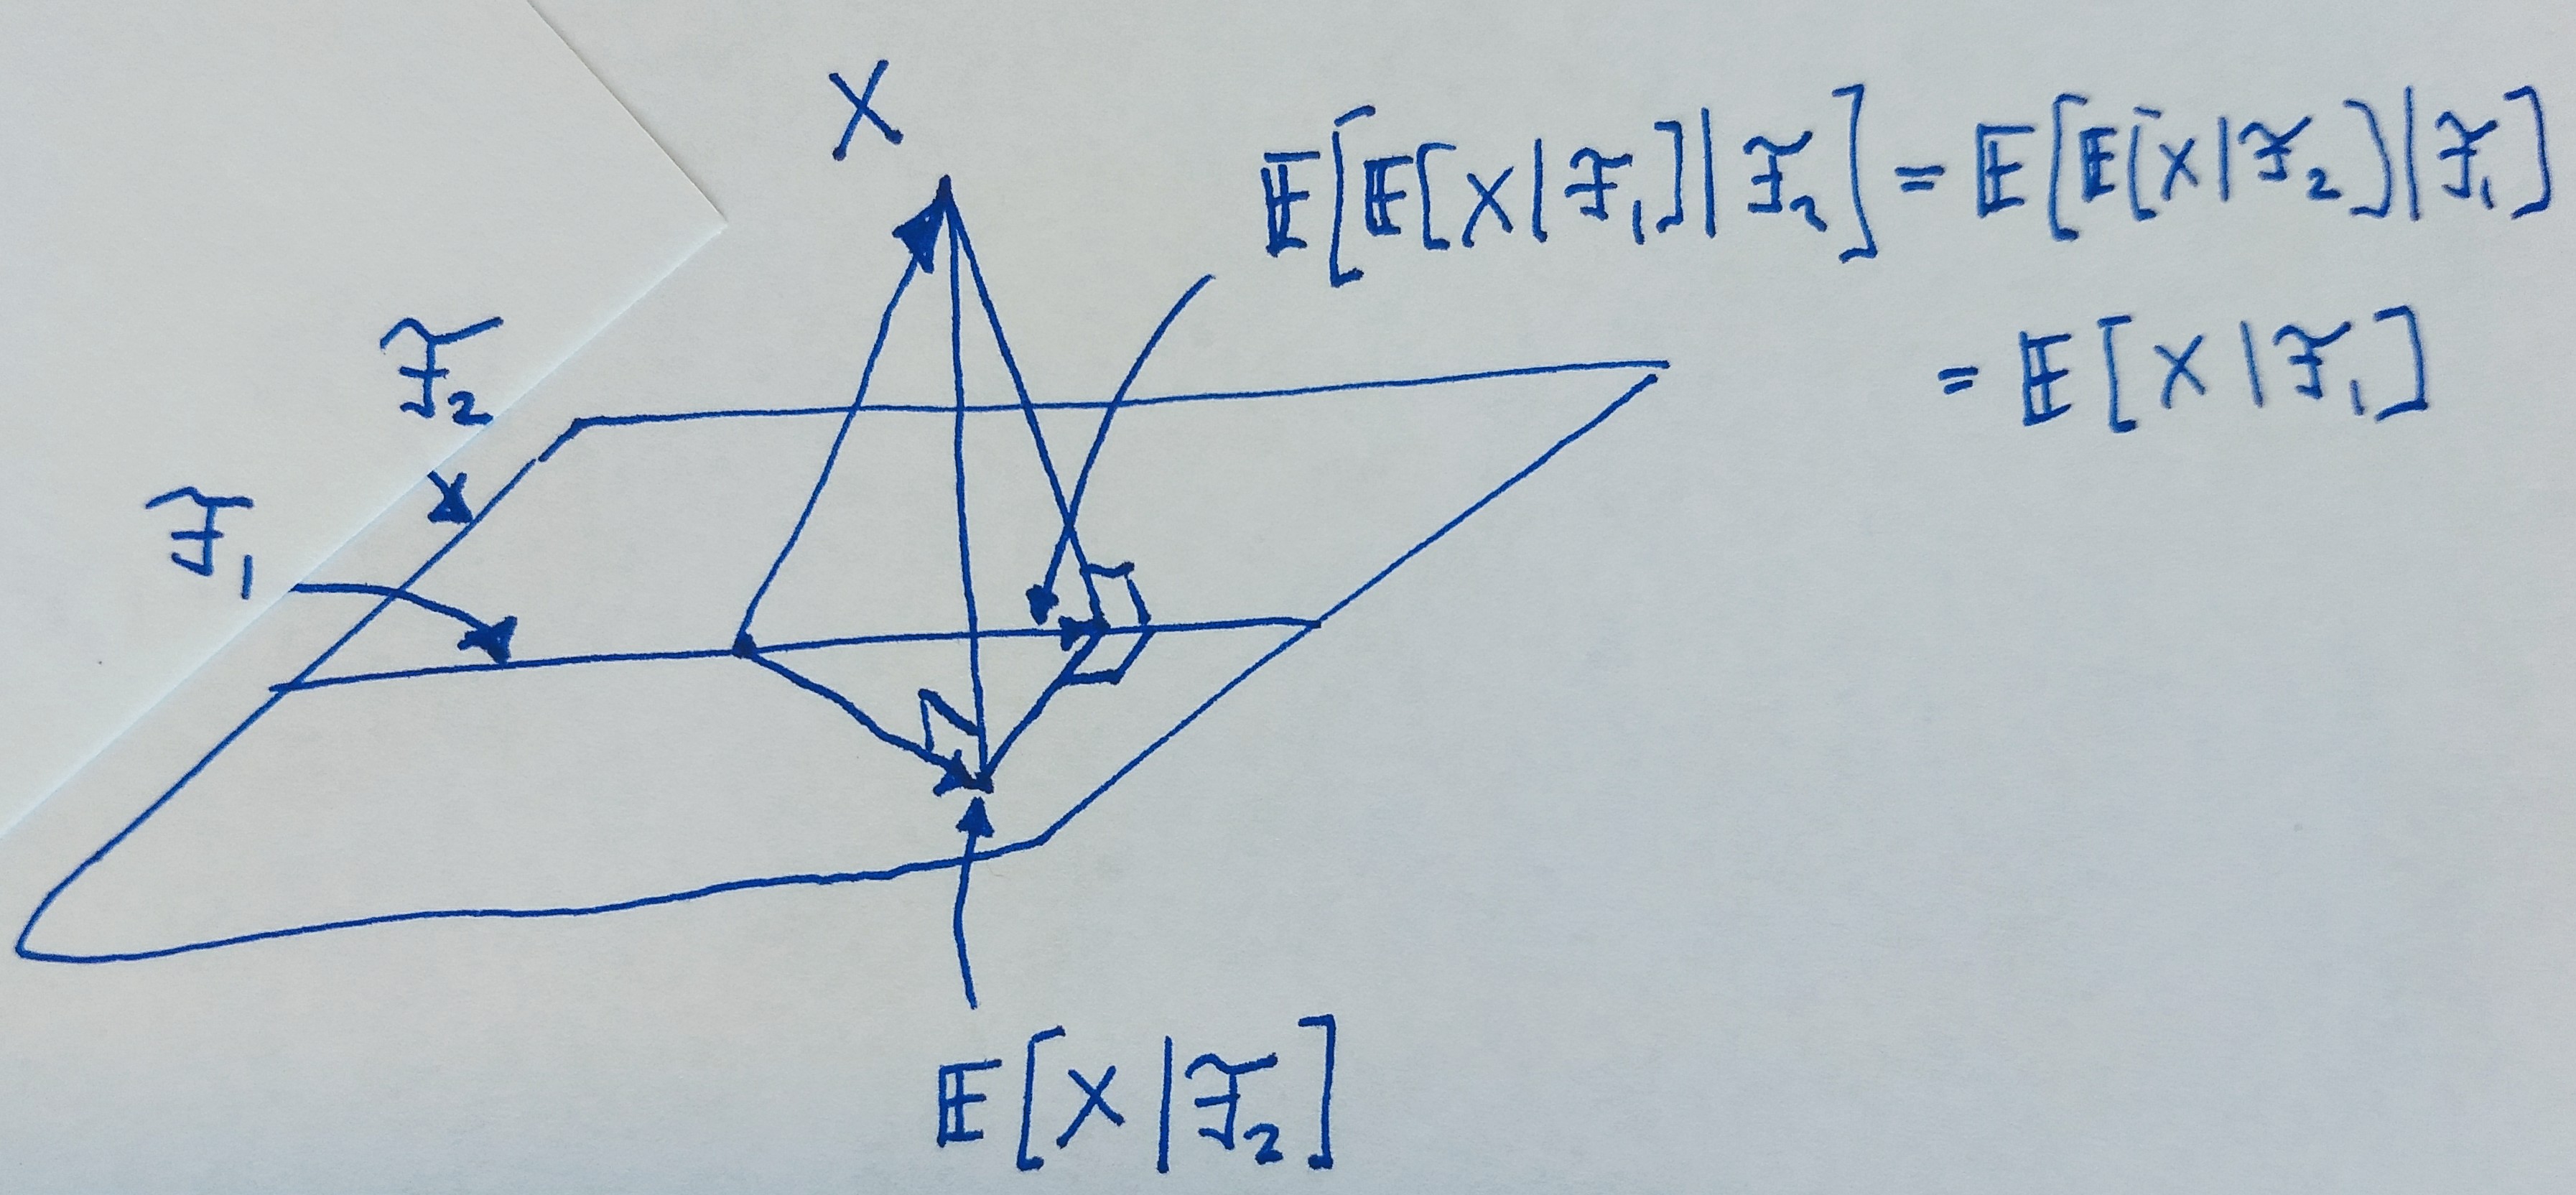 X
𝔼[𝔼[X|ℱ₁]|ℱ₂] = 𝔼[𝔼[X|ℱ₂]|ℱ₁]
= 𝔼[X|ℱ₁]
ℱ₂
ℱ₁
𝔼[X|ℱ₂]